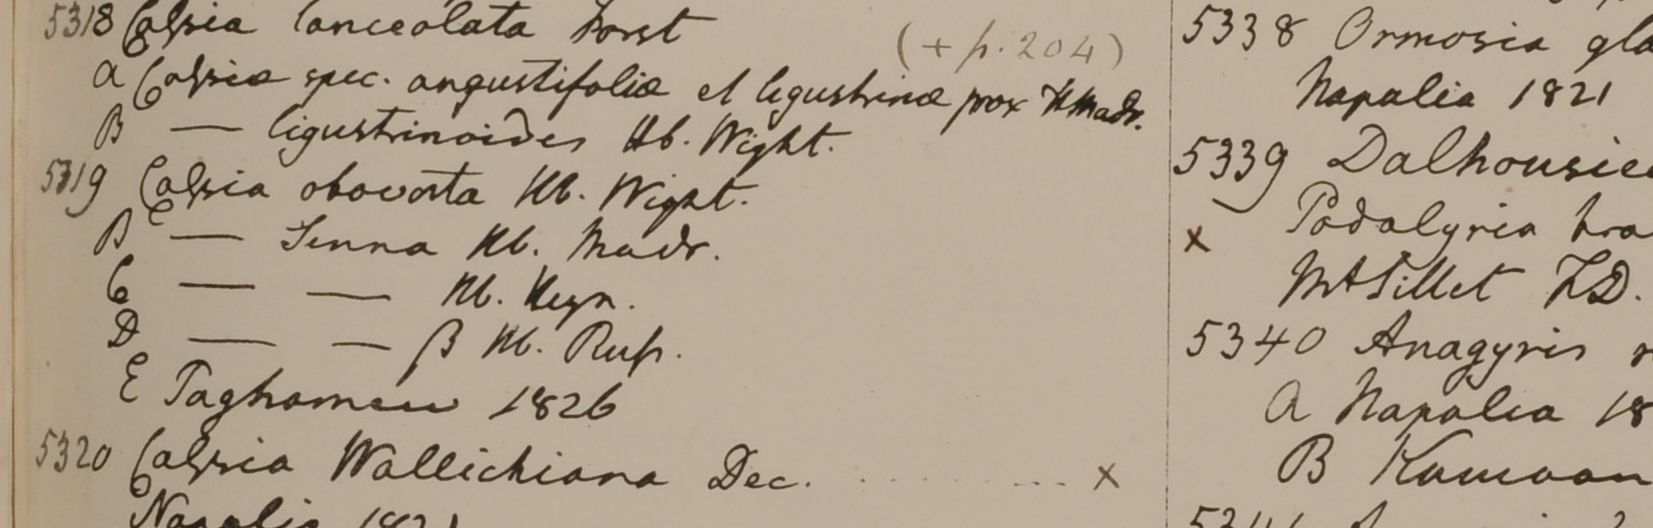 5318 Cassia lanceolata Forst
(+ p. 204)
A Cassiæ spec. angustifoliæ et ligustrinæ prox H Madr.
B — ligustrinoides Hb. Wight.
5319 Cassia obovata Hb. Wight.
B — Senna Hb. Madr.
C — — Hb. Heyn.
D — — β Hb. Rup.
E Taghamew 1826
5320 Cassia Wallichiana Dec. x
Napalia 1821
5338 Ormosia gla
Napalia 1821
5339 Dalhousiea
x Podalyria bra
M A Sillet F.D.
5340 Anagyris n
A Napalia 18
B Kamaon
5341